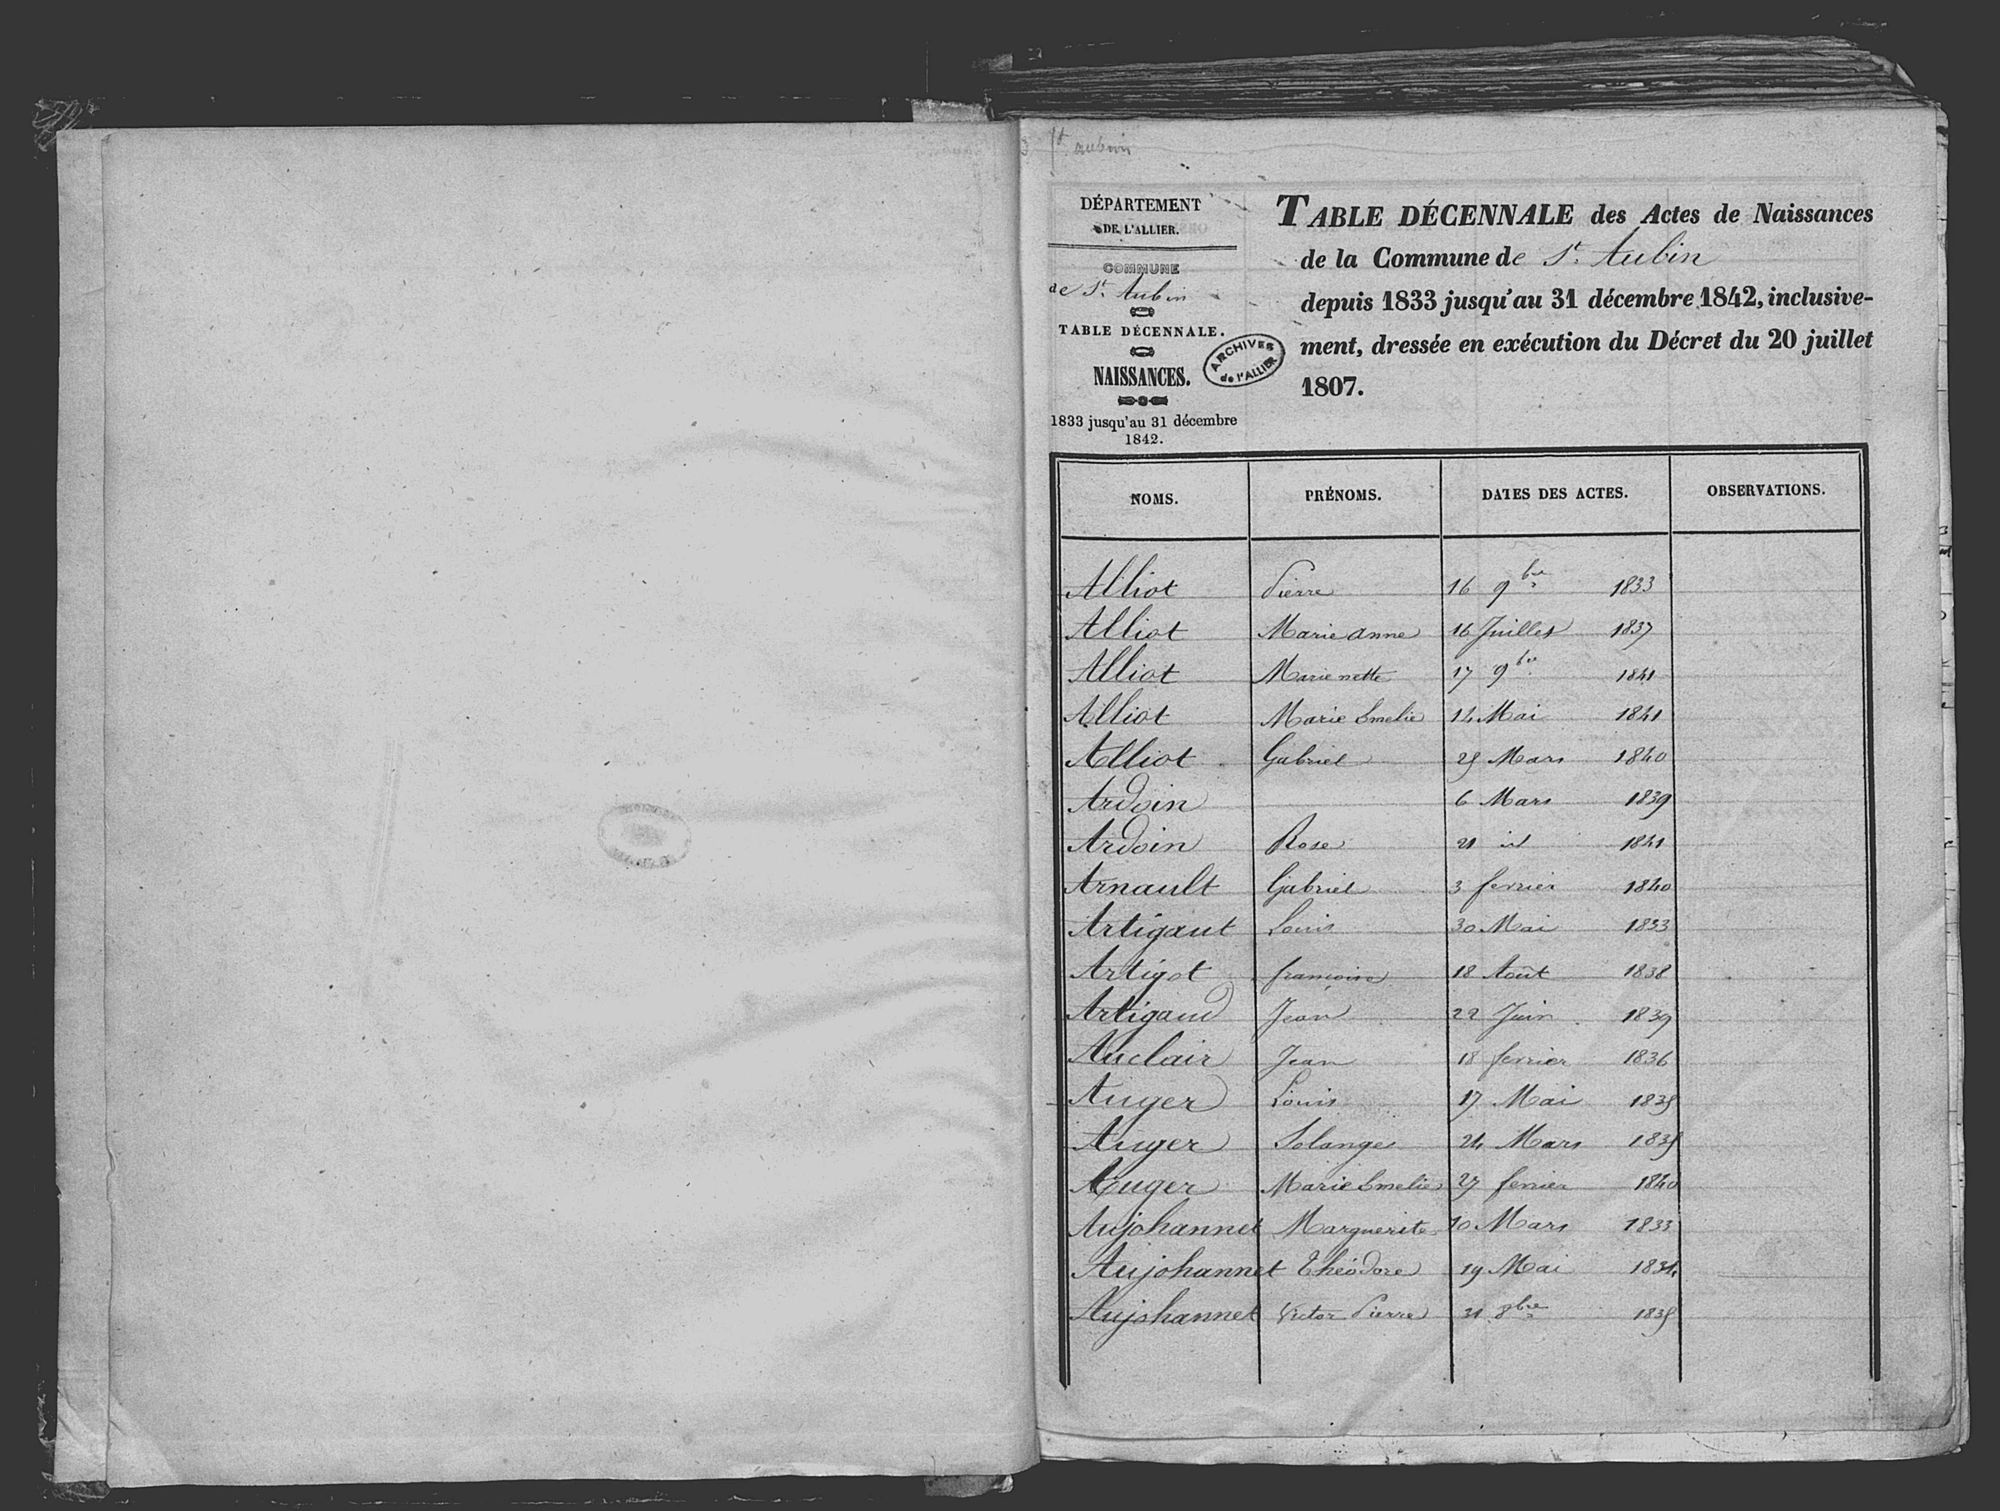 St. aubin
DÉPARTEMENT
DE L'ALLIER.
COMMUNE
de St. Aubin
TABLE DÉCENNALE.
NAISSANCES.
1833 jusqu'au 31 décembre
1842.
ARCHIVES
de l'ALLIER
TABLE DÉCENNALE des Actes de Naissances
de la Commune de St. Aubin
depuis 1833 jusqu'au 31 décembre 1842, inclusive-
ment, dressée en exécution du Décret du 20 juillet
1807.
NOMS. PRÉNOMS. DATES DES ACTES. OBSERVATIONS.
Alliot Pierre 16 9bre 1833
Alliot Marie anne 16 Juillet 1837
Alliot Marie nette 17 9bre 1841
Alliot Marie Emelie 14 Mai 1841
Alliot Gabriel 25 Mars 1840
Ardoin 6 Mars 1839
Ardoin Rose 21 id 1841
Arnault Gabriel 3 fevrier 1840
Artigaut Louis 30 Mai 1833
Artigot francoise 18 Août 1838
Artigaud Jean 22 Juin 1839
Auclair Jean 18 fevrier 1836
Auger Louis 17 Mai 1835
Auger Solange 24 Mars 1835
Auger Marie Emelie 27 fevrier 1840
Aujohannet Marguerite 10 Mars 1833
Aujohannet Théodore 19 Mai 1834
Aujohannet Victor Pierre 31 8bre 1835